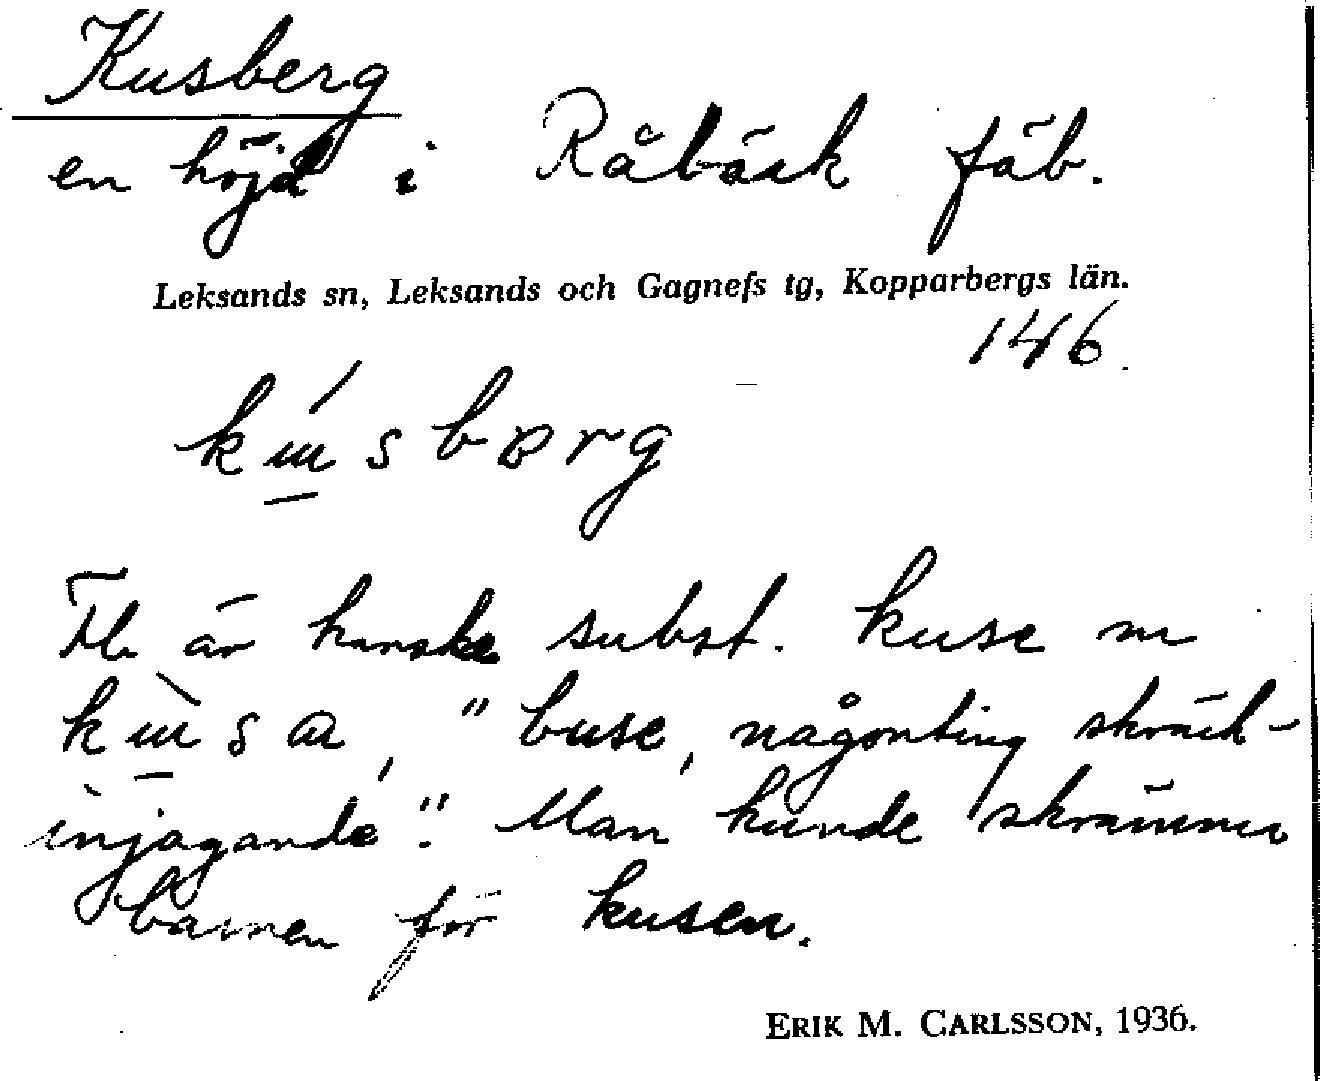 Kusberg
en höjd i Råbäck fäb.
Leksands sn, Leksands och Gagnefs tg, Kopparbergs län.
146.
kɯ́sbərg
Fl. är kanske subst. kuse m
kɯ̀sa, "buse, någonting skräck-
injagande". Man kunde skrämma
barnen för kusen.
ERIK M. CARLSSON, 1936.